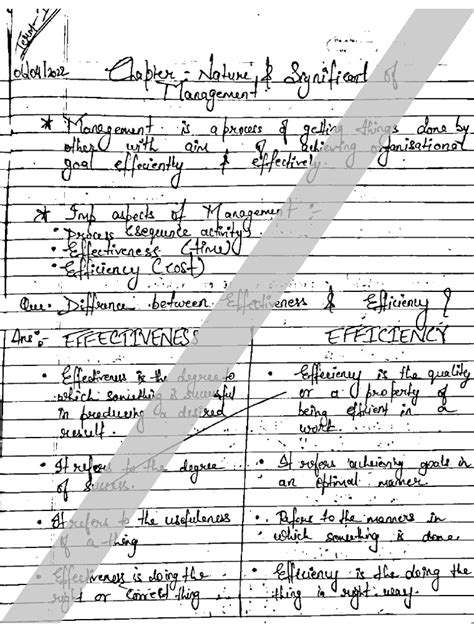 Term-1
06/04/2022
Chapter - Nature & Significant of
Management
* Management is a process of getting things done by
other with aim of achieving organisational
goal effeciently & effectively.
* Imp aspects of Management :-
• Process (sequence activity)
• Effectiveness (time)
• Efficiency (cost)
Que. Diffrance between Effectiveness & Efficiency ?
Ans:- EFFECTIVENESS EFFICIENCY
• Effectiveness is the degree to • Effeciency is the quality
which something is successful or a property of
in producing a desired being efficient in a
result. work.
• It refers to the degree • It refers achieving goals in
of success. an optimal manner
• It refers to the usefulness • Refers to the manners in
of a thing which something is done.
• Effectiveness is doing the • Efficiency is the doing the
right or correct thing thing in right way.